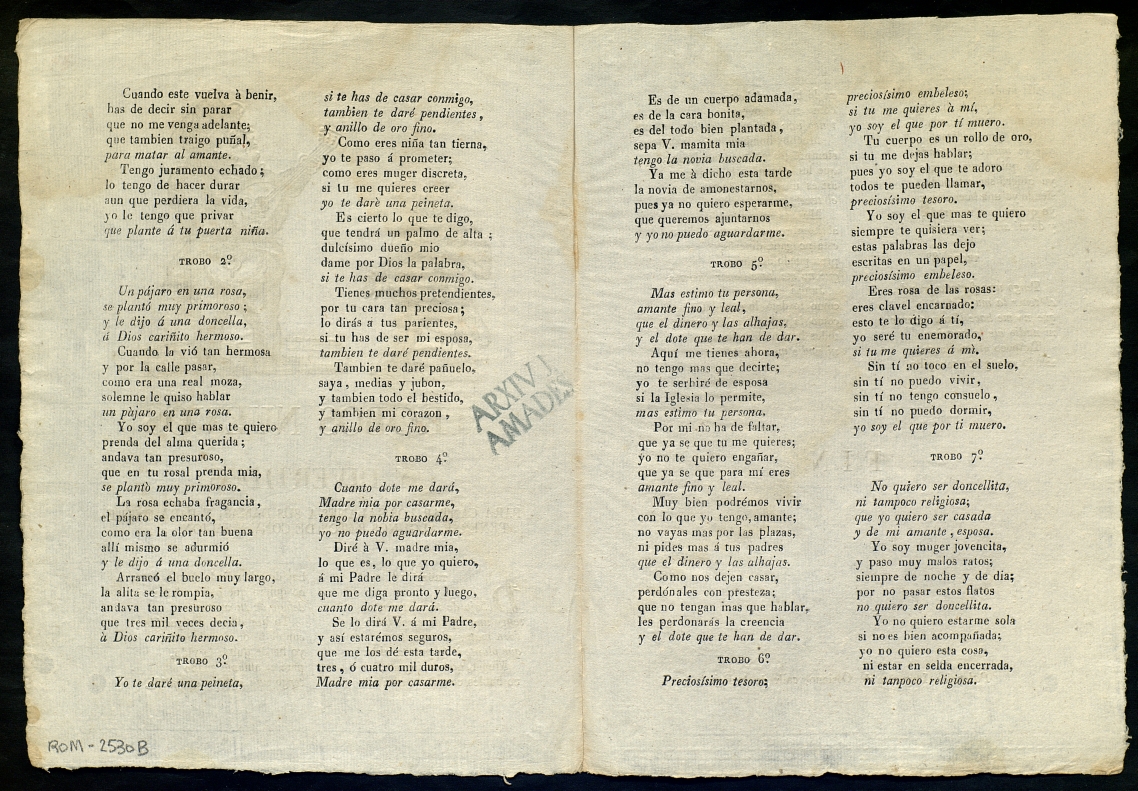 Cuando este vuelva à benir,
has de decir sin parar
que no me venga adelante;
que tambien traigo puñal,
para matar al amante.
Tengo juramento echado;
lo tengo de hacer durar
aun que perdiera la vida,
yo le tengo que privar
que plante á tu puerta niña.
TROBO 2º
Un pájaro en una rosa,
se plantó muy primoroso;
y le dijo á una doncella,
á Dios cariñito hermoso.
Cuando la vió tan hermosa
y por la calle pasar,
como era una real moza,
solemne le quiso hablar
un pàjaro en una rosa.
Yo soy el que mas te quiero
prenda del alma querida;
andava tan presuroso,
que en tu rosal prenda mia,
se plantò muy primoroso.
La rosa echaba fragancia,
el pájaro se encantó,
como era la olor tan buena
allí mismo se adurmió
y le dijo á una doncella.
Arrancó el buelo muy largo,
la alita se le rompia,
andava tan presuroso
que tres mil veces decia,
à Dios cariñito hermoso.
TROBO 3º
Yo te daré una peineta,
si te has de casar conmigo,
tambien te daré pendientes,
y anillo de oro fino.
Como eres niña tan tierna,
yo te paso á prometer;
como eres muger discreta,
si tu me quieres creer
yo te darè una peineta.
Es cierto lo que te digo,
que tendrá un palmo de alta;
dulcísimo dueño mio
dame por Dios la palabra,
si te has de casar conmigo.
Tienes muchos pretendientes,
por tu cara tan preciosa;
lo dirás a tus parientes,
si tu has de ser mi esposa,
tambien te daré pendientes.
Tambien te daré pañuelo,
saya, medias y jubon,
y tambien todo el bestido,
y tambien mi corazon,
y anillo de oro fino.
TROBO 4º
Cuanto dote me dará,
Madre mia por casarme,
tengo la nobia buscada,
yo no puedo aguardarme.
Diré à V. madre mia,
lo que es, lo que yo quiero,
á mi Padre le dirá
que me diga pronto y luego,
cuanto dote me dará.
Se lo dirá V. á mi Padre,
y así estarémos seguros,
que me los dé esta tarde,
tres, ó cuatro mil duros,
Madre mia por casarme.
Es de un cuerpo adamada,
es de la cara bonita,
es del todo bien plantada,
sepa V. mamita mia
tengo la novia buscada.
Ya me à dicho esta tarde
la novia de amonestarnos,
pues ya no quiero esperarme,
que queremos ajuntarnos
y yo no puedo aguardarme.
TROBO 5º
Mas estimo tu persona,
amante fino y leal,
que el dinero y las alhajas,
y el dote que te han de dar.
Aquí me tienes ahora,
no tengo mas que decirte;
yo te serbiré de esposa
si la Iglesia lo permite,
mas estimo tu persona.
Por mi no ha de faltar,
que ya se que tu me quieres;
yo no te quiero engañar,
que ya se que para mí eres
amante fino y leal.
Muy bien podrémos vivir
con lo que yo tengo, amante;
no vayas mas por las plazas,
ni pides mas á tus padres
que el dinero y las alhajas.
Como nos dejen casar,
perdónales con presteza;
que no tengan mas que hablar,
les perdonarás la creencia
y el dote que te han de dar.
TROBO 6º
Preciosísimo tesoro;
preciosísimo embeleso;
si tu me quieres à mí,
yo soy el que por tí muero.
Tu cuerpo es un rollo de oro,
si tu me dejas hablar;
pues yo soy el que te adoro
todos te pueden llamar,
preciosísimo tesoro.
Yo soy el que mas te quiero
siempre te quisiera ver;
estas palabras las dejo
escritas en un papel,
preciosísimo embeleso.
Eres rosa de las rosas:
eres clavel encarnado:
esto te lo digo á tí,
yo seré tu enemorado,
si tu me quieres á mì.
Sin tí no toco en el suelo,
sin tí no puedo vivir,
sin tí no tengo consuelo,
sin tí no puedo dormir,
yo soy el que por ti muero.
TROBO 7º
No quiero ser doncellita,
ni tampoco religiosa;
que yo quiero ser casada
y de mi amante, esposa.
Yo soy muger jovencita,
y paso muy malos ratos;
siempre de noche y de dia;
por no pasar estos flatos
no quiero ser doncellita.
Yo no quiero estarme sola
si no es bien acompañada;
yo no quiero esta cosa,
ni estar en selda encerrada,
ni tanpoco religiosa.
ARXIU J.
AMADES
ROM-2530B